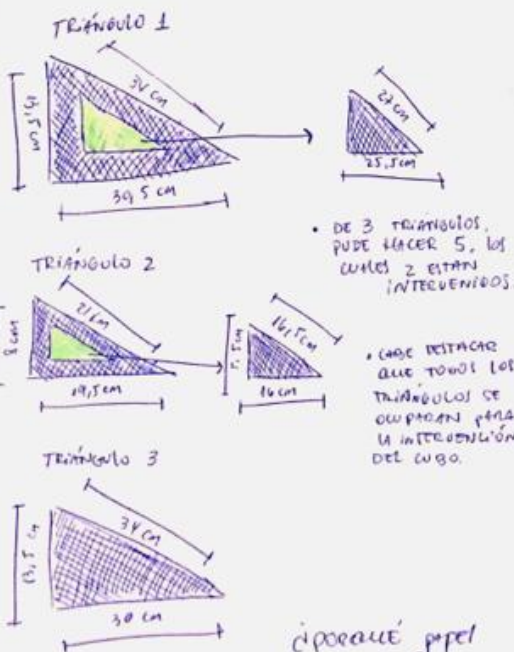 TRIÁNGULO 1
34 cm
13,5 cm
30,5 cm
27 cm
25,5 cm
• DE 3 TRIÁNGULOS,
PUDE HACER 5, LOS
CUALES 2 ESTAN
INTERVENIDOS.
TRIÁNGULO 2
21 cm
8 cm
19,5 cm
16,5 cm
7,5 cm
16 cm
• CABE DESTACAR
QUE TODOS LOS
TRIÁNGULOS SE
OCUPARAN PARA
LA INTERVENCIÓN
DEL CUBO.
TRIÁNGULO 3
34 cm
13,5 cm
30 cm
¿PORQUÉ papel